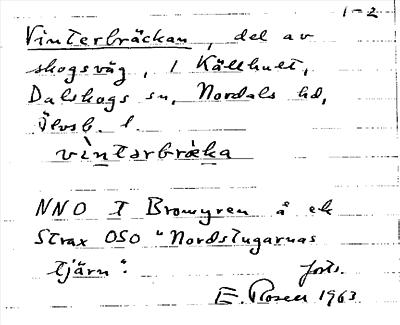 1-2
Vinterbräckan, del av
skogsväg, 1 Källhult,
Dalskogs sn, Nordals hd,
Älvsb. l.
vìntərbrɛ̀ka
NNO I Bromyren å ek
Strax OSO "Nordstugarnas
tjärn".
forts.
E. Rosell 1963